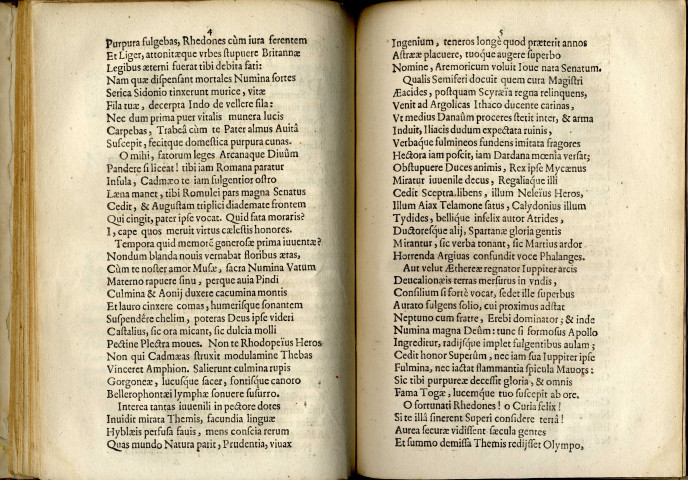 4
Purpura fulgebas, Rhedones cùm iura ferentem
Et Liger, attonitæque vrbes stupuere Britannæ
Legibus æterni fuerat tibi debita fati:
Nam quæ dispensant mortales Numina sortes
Serica Sidonio tinxerunt murice, vitæ
Fila tuæ, decerpta Indo de vellere fila:
Nec dum prima puer vitalis munera lucis
Carpebas, Trabeâ cùm te Pater almus Auitâ
Suscepit, fecitque domestica purpura cunas.
O mihi, fatorum leges Arcanaque Diuûm
Pandere si liceat! tibi iam Romana paratur
Insula, Cadmæo te iam fulgentior ostro
Læna manet, tibi Romulei pars magna Senatus
Cedit, & Augustam triplici diademate frontem
Qui cingit, pater ipse vocat. Quid fata moraris?
I, cape quos meruit virtus cælestis honores.
Tempora quid memorē generosæ prima iuuentæ?
Nondum blanda nouis vernabat floribus ætas,
Cùm te noster amor Musæ, sacra Numina Vatum
Materno rapuere sinu, perque auia Pindi
Culmina & Aonij duxere cacumina montis
Et lauro cinxere comas, humerisque sonantem
Suspendêre chelim, poteras Deus ipse videri
Castalius, sic ora micant, sic dulcia molli
Pectine Plectra moues. Non te Rhodopeïus Heros
Non qui Cadmæas struxit modulamine Thebas
Vinceret Amphion. Salierunt culmina rupis
Gorgoneæ, lucusque sacer, fontisque canoro
Bellerophontæi lymphæ sonuere susurro.
Interea tantas iuuenili in pectore dotes
Inuidit mirata Themis, facundia linguæ
Hyblæis persusa fauis, mens conscia rerum
Quas mundo Natura parit, Prudentia, viuax
5
Ingenium, teneros longè quod præterit annos
Astrææ placuere, tuoque augere superbo
Nomine, Aremoricum voluit Ioue nata Senatum.
Qualis Semiferi docuit quem cura Magistri
Æacides, postquam Scyræïa regna relinquens,
Venit ad Argolicas Ithaco ducente carinas,
Vt medius Danaûm proceres stetit inter, & arma
Induit, Iliacis dudum expectata ruinis,
Verbaque fulmineos fundens imitata fragores
Hectora iam poscit, iam Dardana mœnia versat;
Obstupuere Duces animis, Rex ipse Mycænus
Miratur iuuenile decus, Regaliaque illi
Cedit Sceptra.libens, illum Neleïus Heros,
Illum Aiax Telamone satus, Calydonius illum
Tydides, bellique infelix autor Atrides,
Ductoresque alij, Spartanæ gloria gentis
Mirantur, sic verba tonant, sic Martius ardor
Horrenda Argiuas confundit voce Phalanges.
Aut velut Æthereæ regnator Iuppiter arcis
Deucalionæis terras mersurus in vndis,
Consilium si fortè vocat, sedet ille superbus
Aurato fulgens solio, cui proximus adstat
Neptuno cum fratre, Erebi dominator; & inde
Numina magna Deûm: tunc si formosus Apollo
Ingreditur, radijsque implet fulgentibus aulam;
Cedit honor Superûm, nec iam sua Iuppiter ipse
Fulmina, nec iactat flammantia spicula Mauors:
Sic tibi purpureæ decessit gloria, & omnis
Fama Togæ, lucemque tuo suscepit ab ore.
O fortunati Rhedones! o Curia felix!
Si te illâ sinerent Superi considere terrâ!
Aurea securæ vidissent sæcula gentes
Et summo demissa Themis redijsset Olympo,